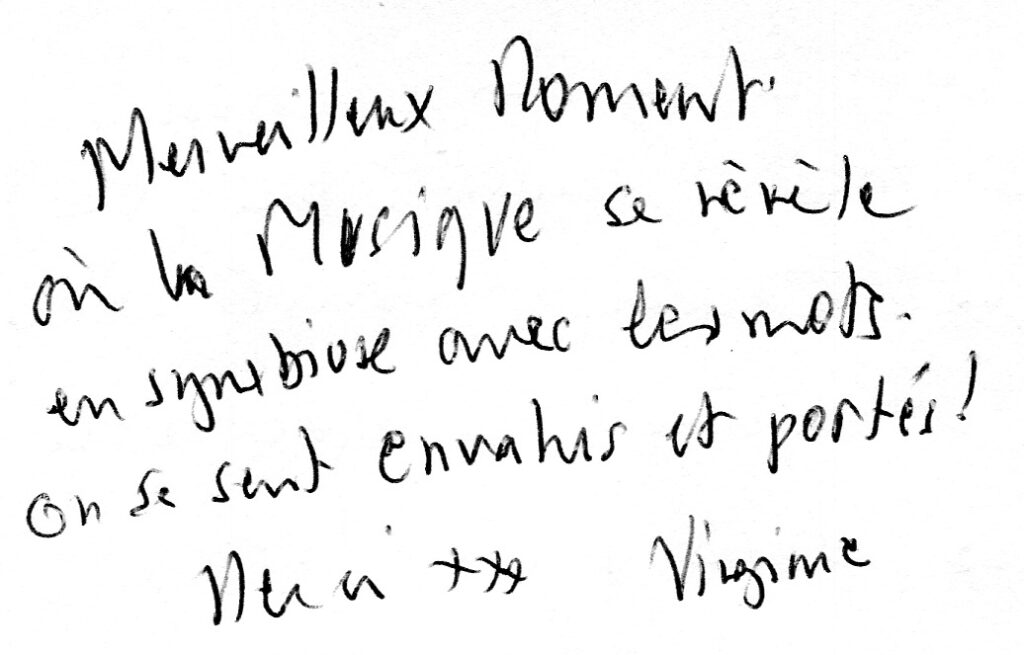 Merveilleux Moment.
où la Musique se révèle
en symbiose avec les mots.
On se sent envahis et portés!
Merci xxx Virginie